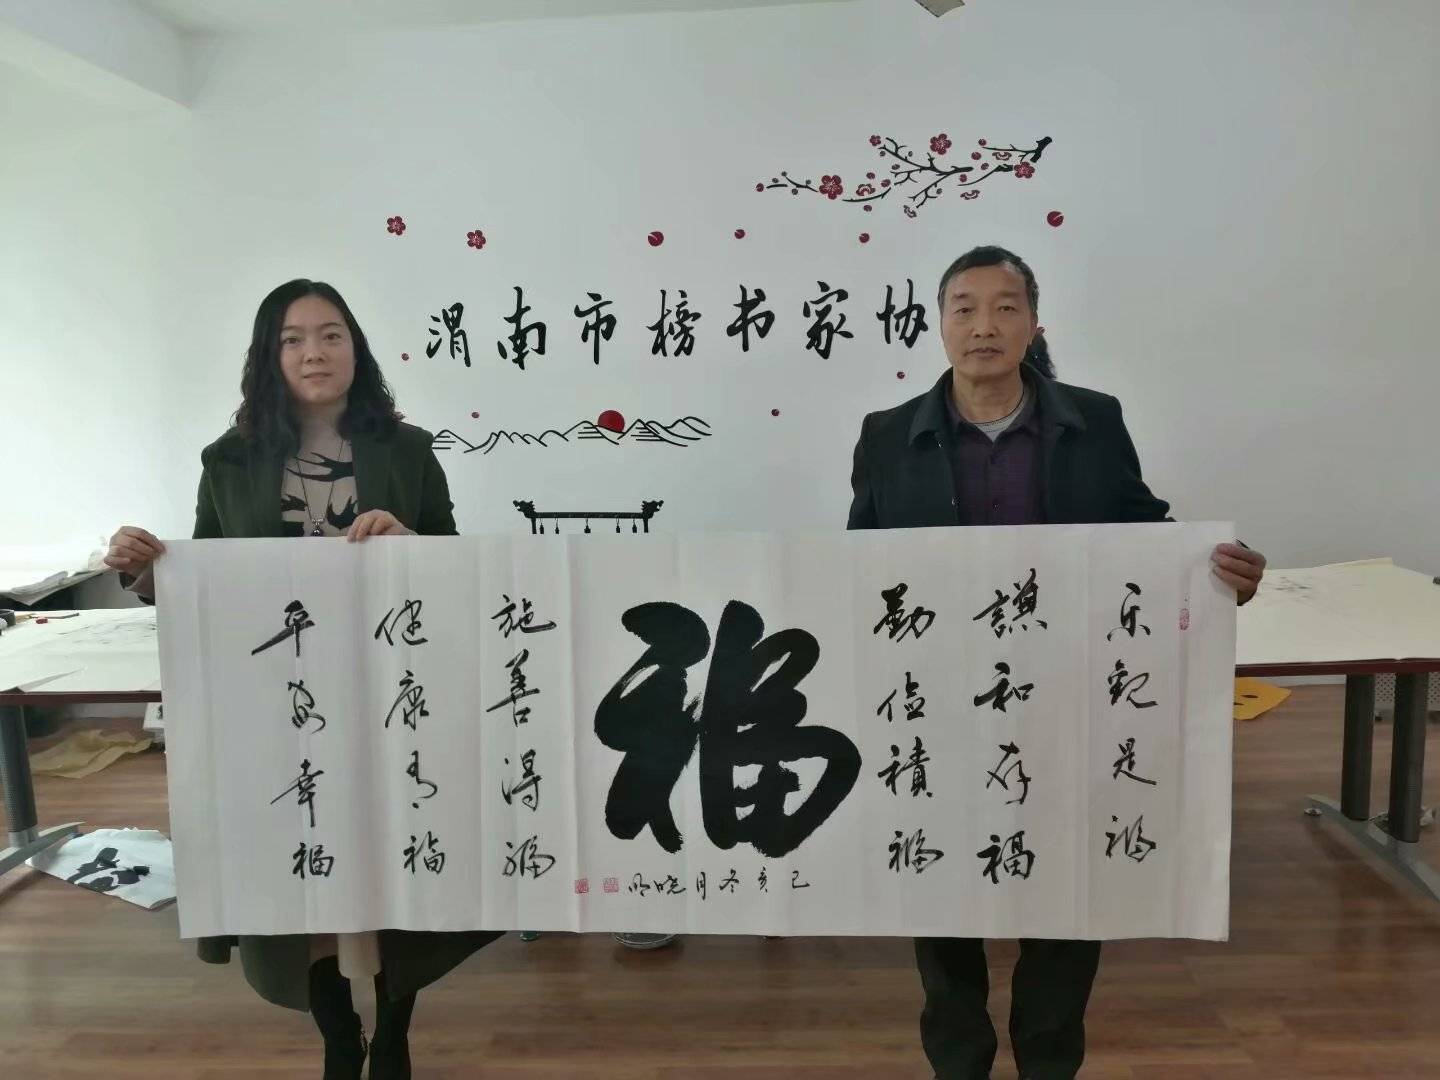 渭南市榜书家协
乐观是福
谦和存福
勤俭積福
福
己亥冬月晓明
施善得福
健康有福
平安幸福